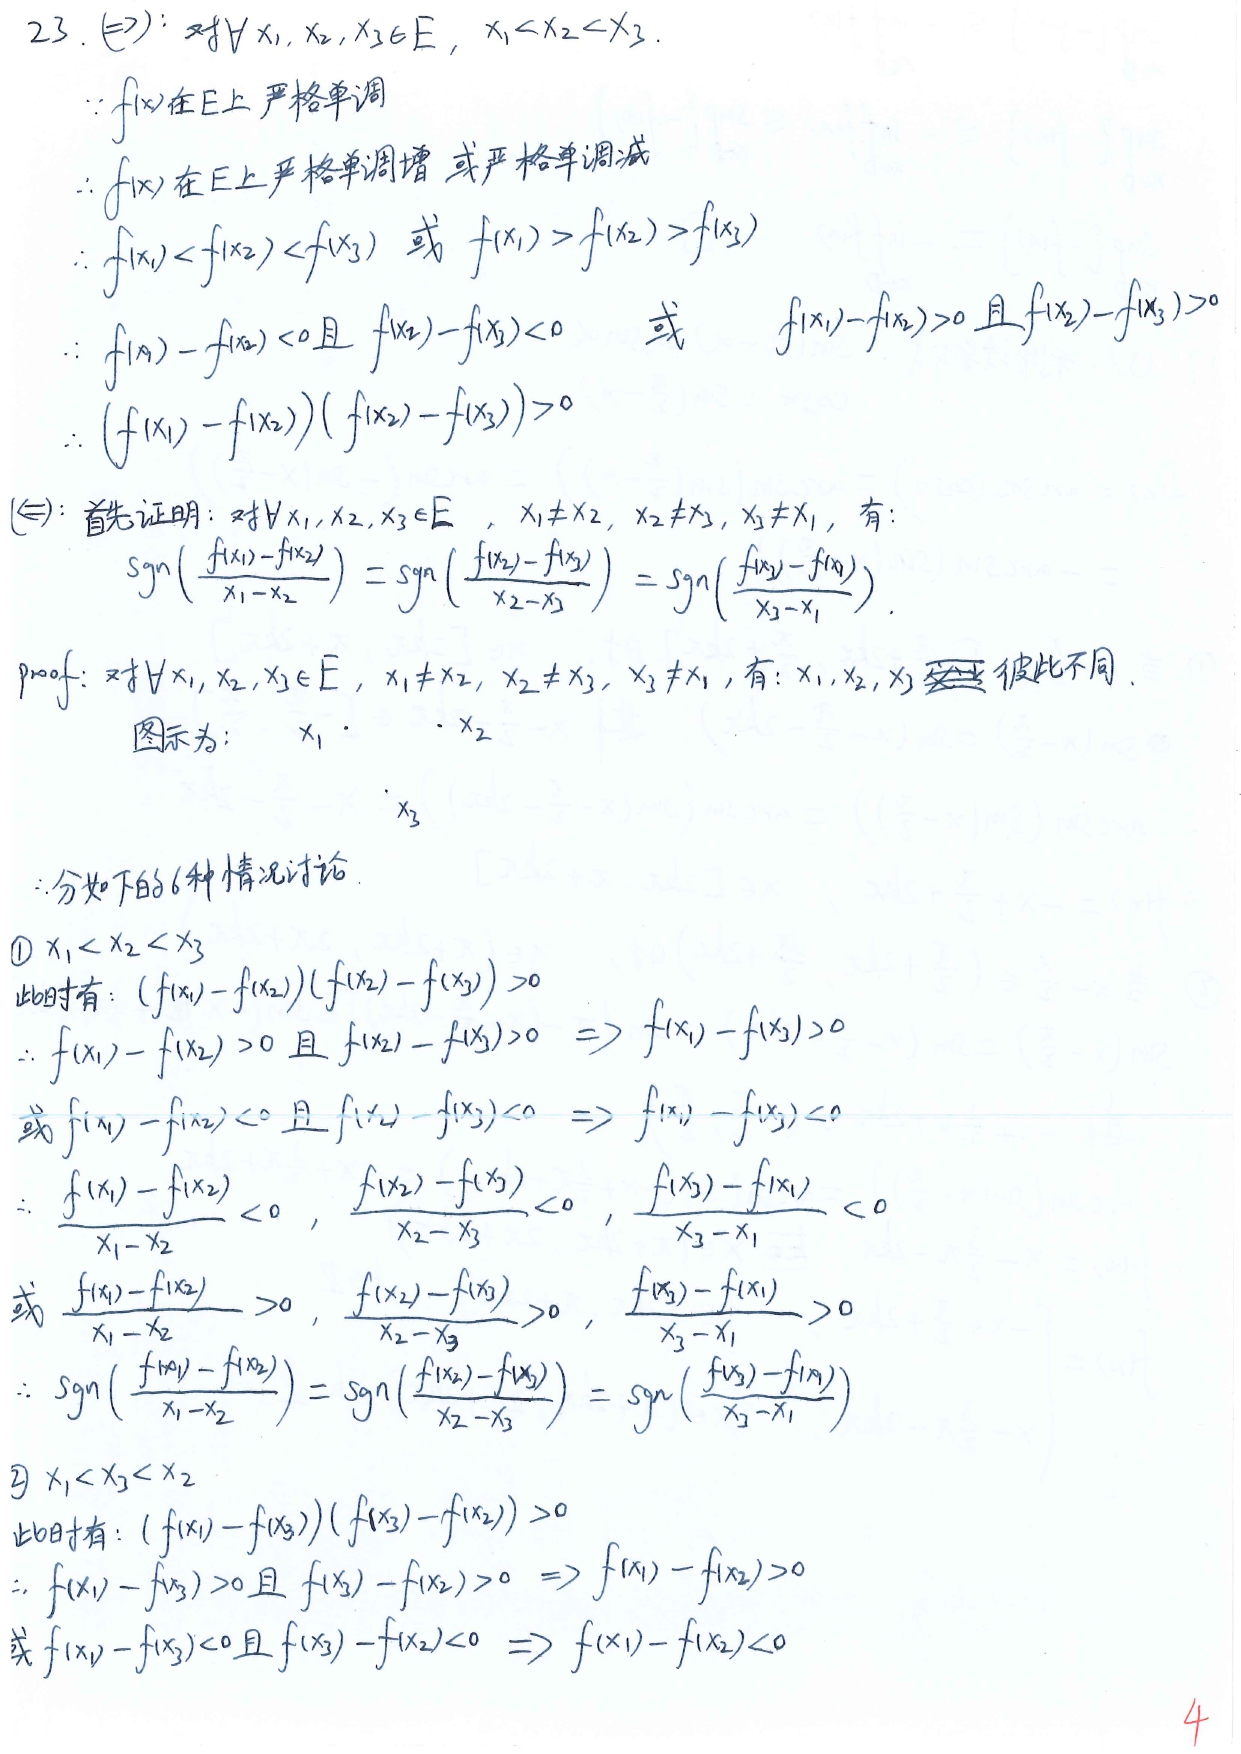 23. (⇒): 对∀x₁, x₂, x₃∈E, x₁<x₂<x₃.
∵ f(x)在E上严格单调
∴ f(x)在E上严格单调增 或严格单调减
∴ f(x₁)<f(x₂)<f(x₃) 或 f(x₁)>f(x₂)>f(x₃)
∴ f(x₁)-f(x₂)<0且 f(x₂)-f(x₃)<0 或 f(x₁)-f(x₂)>0 且 f(x₂)-f(x₃)>0
∴ (f(x₁)-f(x₂))(f(x₂)-f(x₃))>0
(⇐): 首先证明: 对∀x₁, x₂, x₃∈E, x₁≠x₂, x₂≠x₃, x₃≠x₁, 有:
sgn((f(x₁)-f(x₂))/(x₁-x₂)) = sgn((f(x₂)-f(x₃))/(x₂-x₃)) = sgn((f(x₃)-f(x₁))/(x₃-x₁)).
proof: 对∀x₁, x₂, x₃∈E, x₁≠x₂, x₂≠x₃, x₃≠x₁, 有: x₁, x₂, x₃ 彼此不同.
图示为: x₁ · · x₂
· x₃
∴分如下的6种情况讨论.
① x₁<x₂<x₃
此时有: (f(x₁)-f(x₂))(f(x₂)-f(x₃))>0
∴ f(x₁)-f(x₂)>0 且 f(x₂)-f(x₃)>0 ⇒ f(x₁)-f(x₃)>0
或 f(x₁)-f(x₂)<0 且 f(x₂)-f(x₃)<0 ⇒ f(x₁)-f(x₃)<0
∴ (f(x₁)-f(x₂))/(x₁-x₂)<0, (f(x₂)-f(x₃))/(x₂-x₃)<0, (f(x₃)-f(x₁))/(x₃-x₁)<0
或 (f(x₁)-f(x₂))/(x₁-x₂)>0, (f(x₂)-f(x₃))/(x₂-x₃)>0, (f(x₃)-f(x₁))/(x₃-x₁)>0
∴ sgn((f(x₁)-f(x₂))/(x₁-x₂)) = sgn((f(x₂)-f(x₃))/(x₂-x₃)) = sgn((f(x₃)-f(x₁))/(x₃-x₁))
② x₁<x₃<x₂
此时有: (f(x₁)-f(x₃))(f(x₃)-f(x₂))>0
∴ f(x₁)-f(x₃)>0且 f(x₃)-f(x₂)>0 ⇒ f(x₁)-f(x₂)>0
或 f(x₁)-f(x₃)<0且 f(x₃)-f(x₂)<0 ⇒ f(x₁)-f(x₂)<0
4